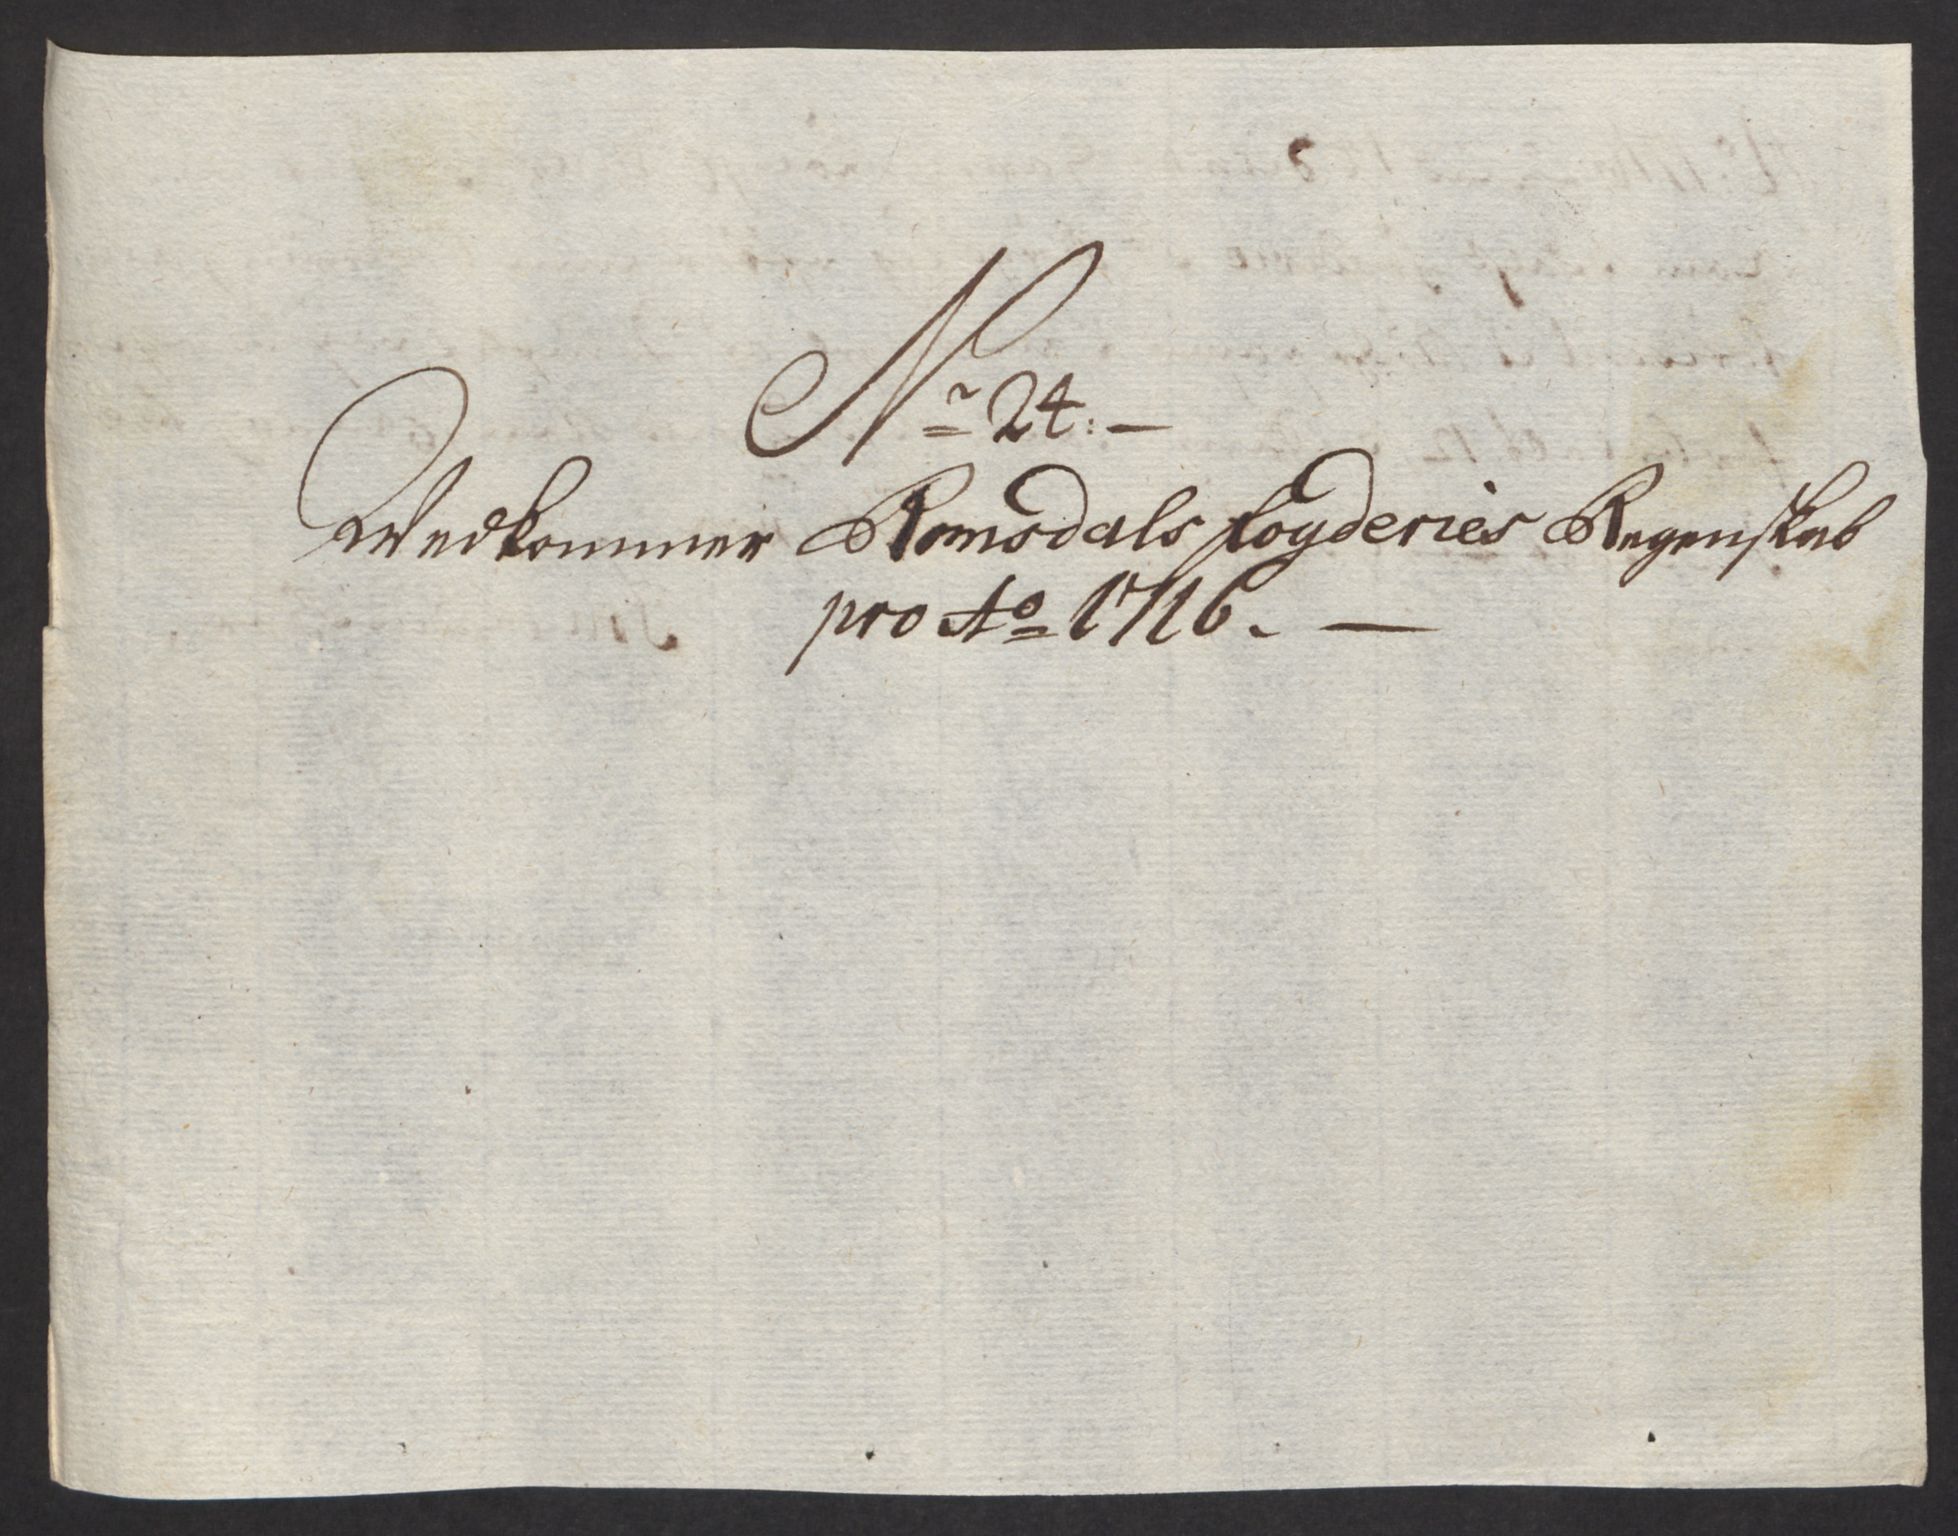 Nr 24:—
Wedkommer Romsdals fogderies Regenskab
pro Ao 1716. —